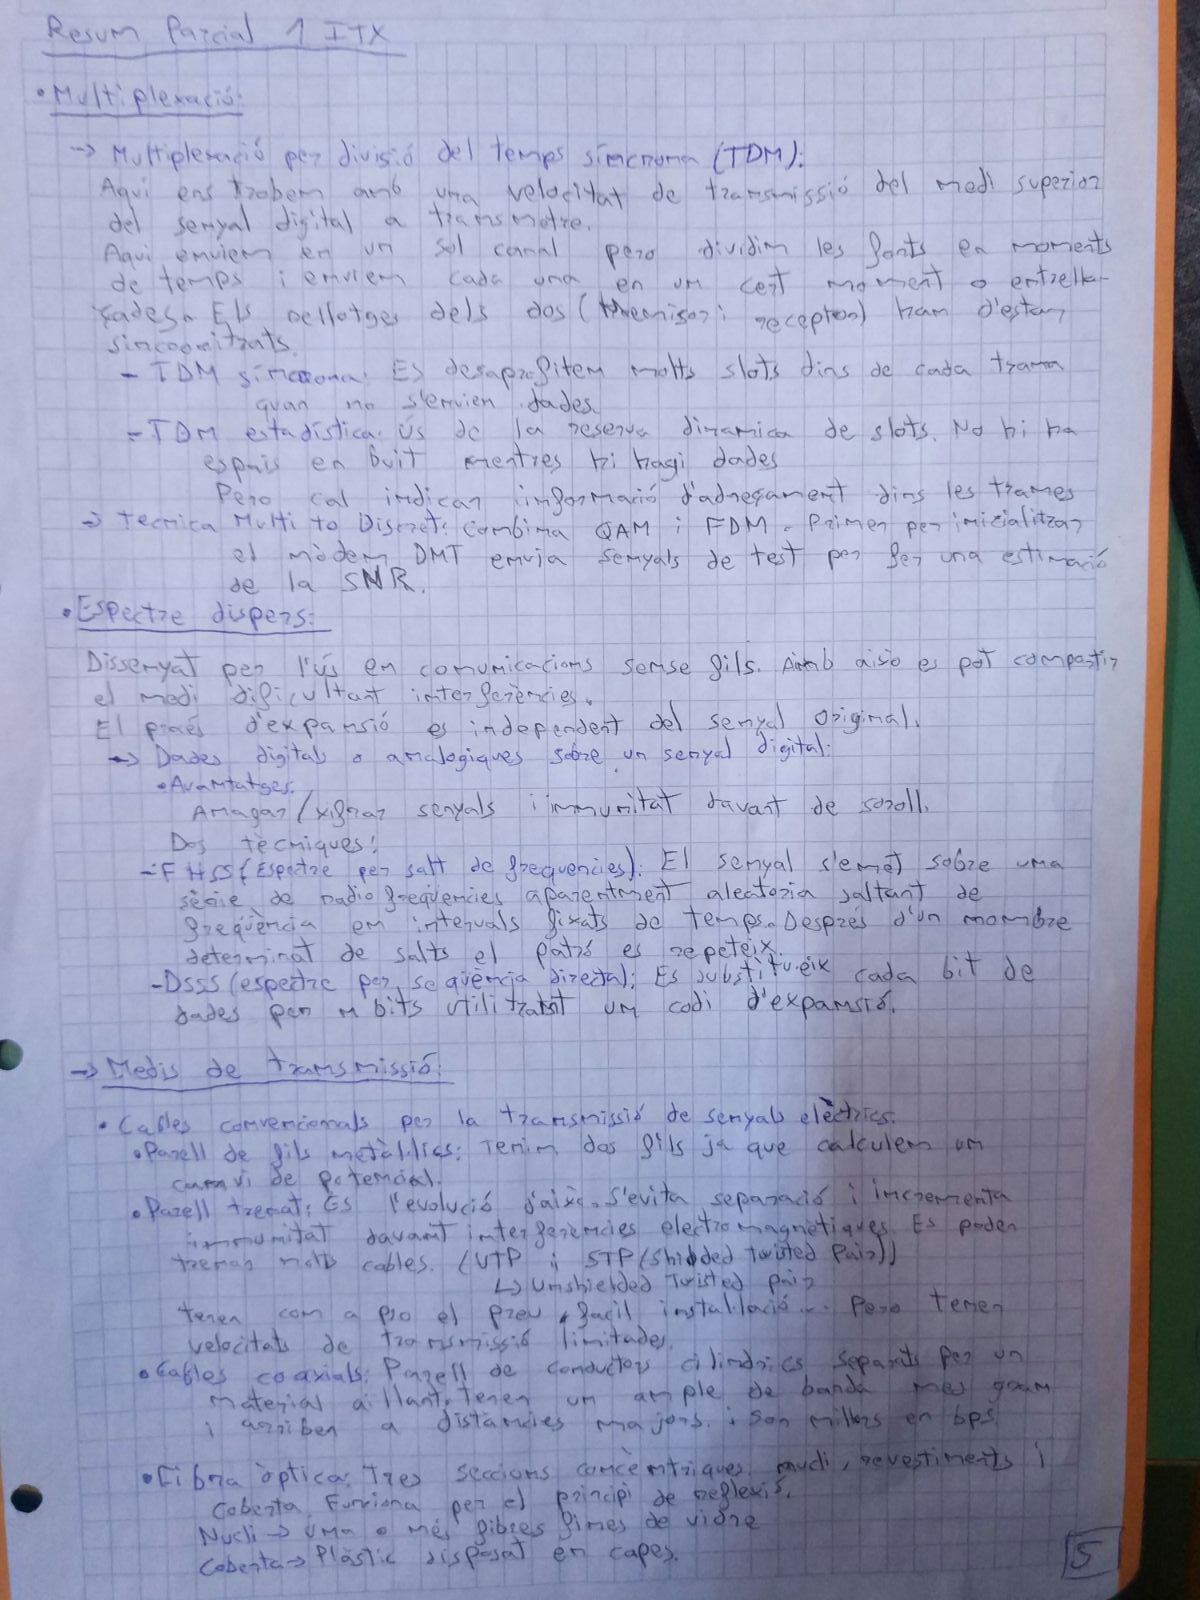 Resum Parcial 1 ITX
• Multiplexació:
→ Multiplexació per divisió del temps síncrona (TDM):
Aquí ens trobem amb una velocitat de transmissió del medi superior
del senyal digital a transmetre.
Aquí enviem en un sol canal pero dividim les fonts en moments
de temps i enviem cada una en un cert moment o entrella-
çades. Els rellotges dels dos ( emisor i receptor) han d'estar
sincronitzats.
- TDM síncrona: Es desaprofitem molts slots dins de cada trama
quan no s'envien dades.
- TDM estadística: ús de la reserva dinamica de slots. No hi ha
espais en buit mentres hi hagi dades
Pero cal indicar informació d'adreçament dins les trames
→ Tecnica Multi to Discret: Combina QAM i FDM. Primer per inicialitzar
el mòdem DMT envia senyals de test per fer una estimació
de la SNR.
• Espectre dispers:
Dissenyat per l'ús en comunicacions sense fils. Amb aixo es pot compartir
el medi dificultant interferències.
El procés d'expansió es independent del senyal original.
→ Dades digitals o analogiques sobre un senyal digital:
• Avantatges:
Amagar/xifrar senyals i immunitat davant de soroll.
Dos tècniques:
- FHSS (Espectre per salt de frequencies): El senyal s'emet sobre una
sèrie de radio freqüencies aparentment aleatoria saltant de
freqüència en intervals fixats de temps. Després d'un nombre
determinat de salts el patró es repeteix.
- DSSS (espectre per seqüència directa): Es substitueix cada bit de
dades per n bits utilitzant un codi d'expansió.
→ Medis de transmissió:
• Cables convencionals per la transmissió de senyals elèctrics.
• Parell de fils metàl·lics: Tenim dos fils ja que calculem un
canvi de potencial.
• Parell trenat: És l'evolució d'aixo. S'evita separació i incrementa
immunitat davant interferències electromagnètiques. Es poden
trenar molts cables. (UTP i STP (Shidded Twisted Pair))
↳ Unshielded Twisted pair
Tenen com a pro el preu, facil instal·lació... Pero tenen
velocitats de transmissió limitades.
• Cables coaxials: Parell de conductors cilindrics separats per un
material aillant. Tenen un ample de banda mes gran
i arriben a distàncies majors. i son millors en bps.
• Fibra òptica: Tres seccions concèntriques nucli, revestiments i
coberta. Funciona per el principi de reflexió.
Nucli → Una o més fibres fines de vidre
Coberta → Plàstic disposat en capes.
5